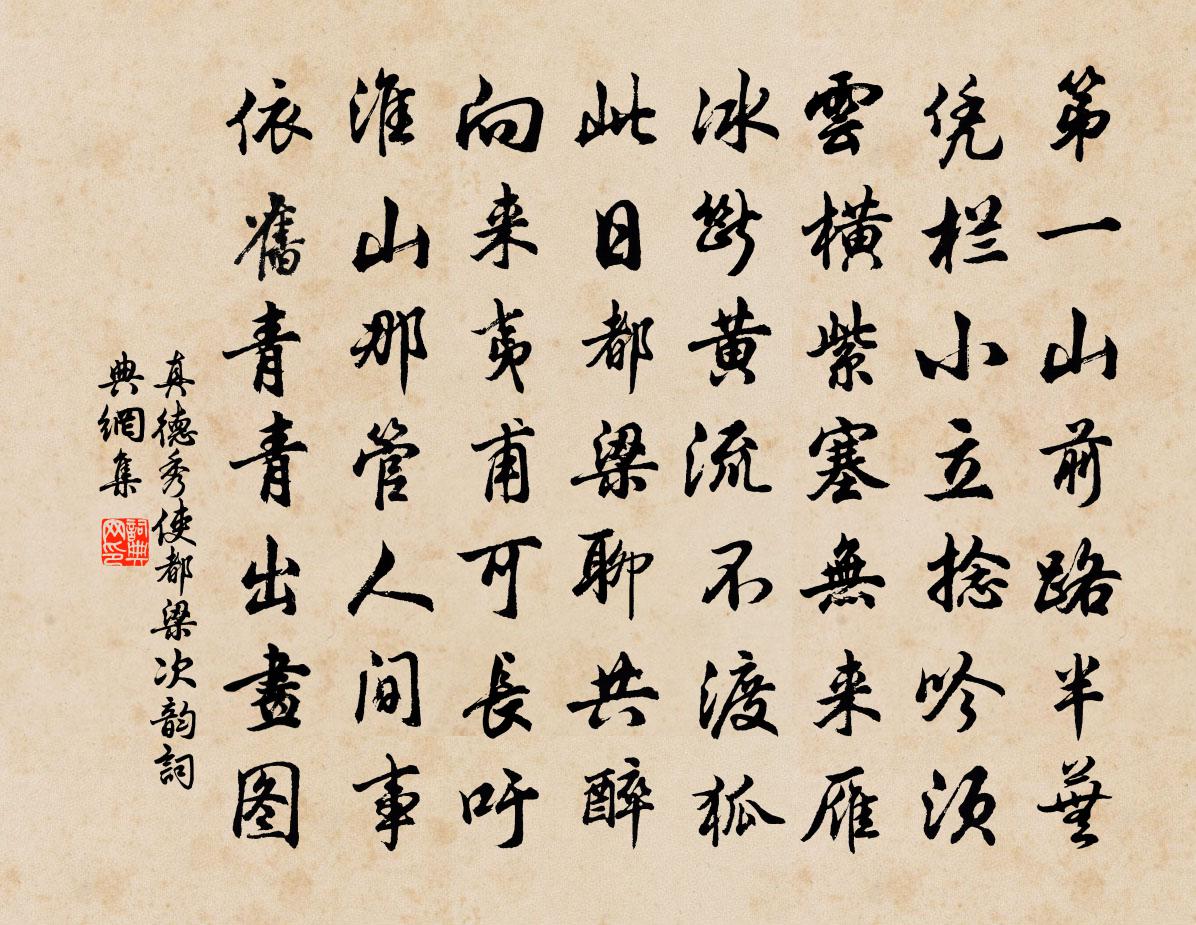 第一山前路半蕪
凭栏小立捻吟须
雲横紫塞無来雁
冰斷黄流不渡狐
此日都梁聊共醉
向来夷甫可長吁
淮山那管人间事
依舊青青出畫图
真德秀使都梁次韵詞
典網集
詞典网印